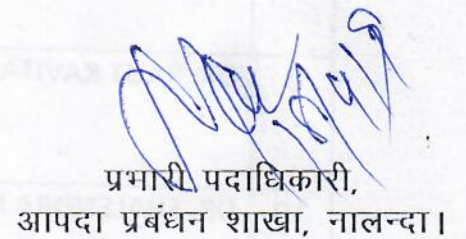 प्रभारी पदाधिकारी,
आपदा प्रबंधन शाखा, नालन्दा।